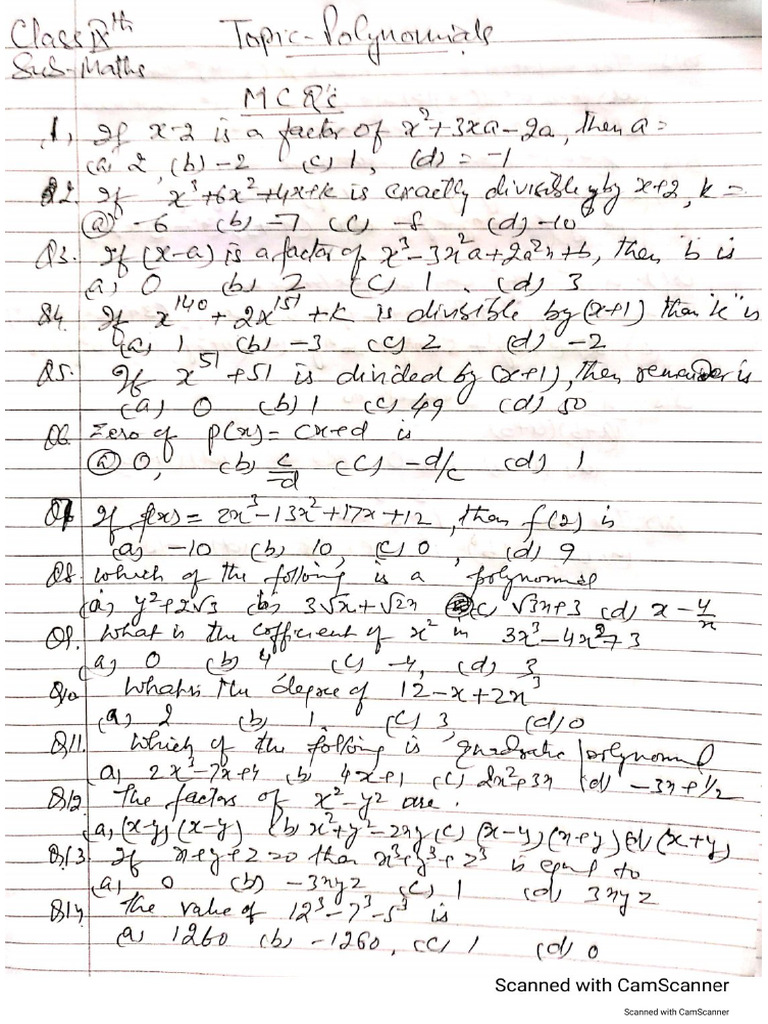 Class IXth Topic - Polynomials
Sub-Maths
MCQ's
1, If x-2 is a factor of x²+3xa-2a, then a =
(a) 2, (b) -2 (c) 1, (d) = -1
Q2. If x³+6x²+4x+k is exactly divisible by x+2, k =
(a) -6 (b) -7 (c) -8 (d) -10
Q3. If (x-a) is a factor of x³-3x²a+2a²x+b, then b is
(a) 0 (b) 2 (c) 1. (d) 3
Q4. If x¹⁴⁰+2x¹⁵¹+k is divisible by (x+1) then 'k' is
(a) 1 (b) -3 (c) 2 (d) -2
Q5. If x⁵¹+51 is divided by (x+1), then remainder is
(a) 0 (b) 1 (c) 49 (d) 50
Q6. Zero of p(x) = cx+d is
(a) 0, (b) c/-d (c) -d/c (d) 1
Q7 If f(x) = 2x³-13x²+17x+12, then f(2) is
(a) -10 (b) 10, (c) 0, (d) 9
Q8. which of the following is a polynomial
(a) y²+2√3 (b) 3√x+√2x (c) √3x+3 (d) x-4/x
Q9. What is the cofficient of x² in 3x³-4x²+3
(a) 0 (b) 4 (c) -4, (d) 3
Q10 What is the degree of 12-x+2x³
(a) 2 (b) 1, (c) 3, (d) 0
Q11. Which of the following is quadratic polynomial
(a) 2x³-7x+4 (b) 4x+1 (c) 2x²+3x (d) -3x+1/2
Q12. The factors of x²-y² are.
(a) (x-y)(x-y) (b) x²+y²-2xy (c) (x-y)(x+y) (d) (x+y)
Q13. If x+y+z=0 then x³+y³+z³ is equal to
(a) 0 (b) -3xyz (c) 1 (d) 3xyz
Q14. The value of 12³-7³-5³ is
(a) 1260 (b) -1260, (c) 1 (d) 0
Scanned with CamScanner
Scanned with CamScanner